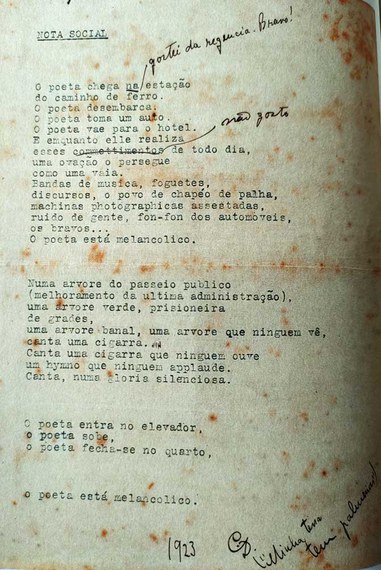 NOTA SOCIAL
gostei da regencia. Bravo!
O poeta chega na estação
do caminho de ferro.
O poeta desembarca.
O poeta toma um auto.
O poeta vae para o hotel.
não gosto
E emquanto elle realiza
esses commettimentos de todo dia,
uma ovação o persegue
como uma vaia.
Bandas de musica, foguetes,
discursos, o povo de chapéo de palha,
machinas photographicas assestadas,
ruido de gente, fon-fon dos automóveis,
os bravos...
O poeta está melancolico.
Numa arvore do passeio publico
(melhoramento da ultima administração),
uma árvore verde, prisioneira
de grades,
uma arvore banal, uma arvore que ninguem vê,
canta uma cigarra.
Canta uma cigarra que ninguem ouve
um hymno que ninguem applaude.
Canta, numa gloria silenciosa.
O poeta entra no elevador,
o poeta sobe,
o poeta fecha-se no quarto,
o poeta está melancolico.
1923
CD.
"Minha terra
tem palmeiras"